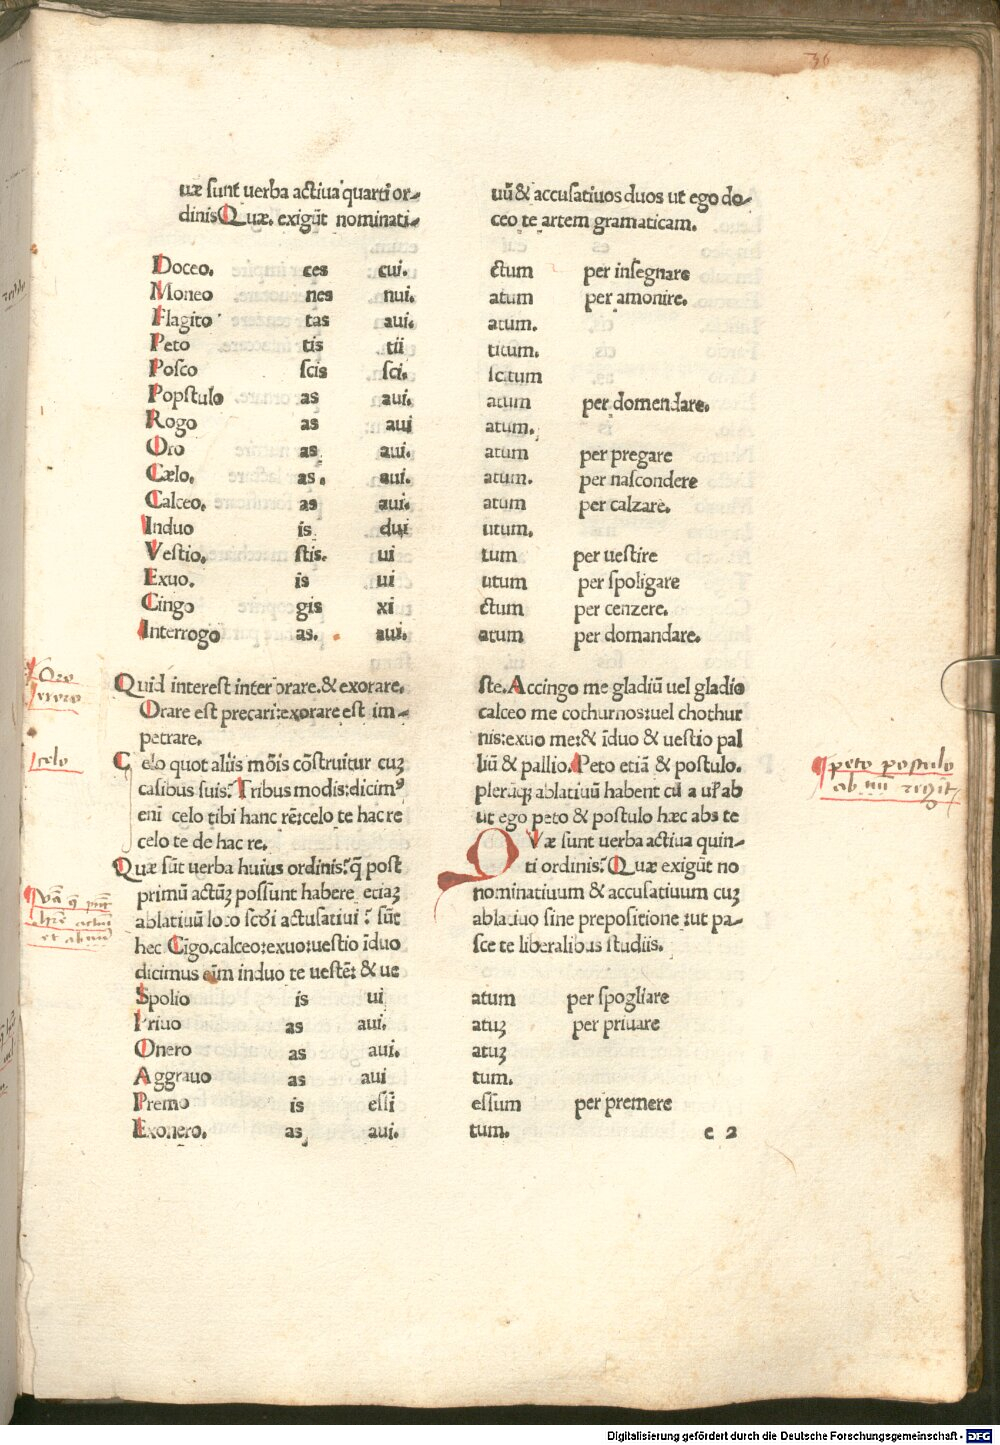 36
uæ sunt uerba actiua quarti or-
dinis Quæ. exigūt nominati-
uū & accusatiuos duos ut ego do-
ceo te artem gramaticam.
Doceo. ces cui. ctum per insegnare
Moneo nes nui. atum per amonire.
Flagito tas aui. atum.
Peto tis tii titum.
Posco scis sci. scitum
Popstulo as aui. atum per domendare.
Rogo as aui atum.
Oro as aui. atum per pregare
Cælo. as. aui. atum. per nascondere
Calceo. as aui. atum per calzare.
Induo is dui utum.
Vestio. stis. ui tum per uestire
Exuo. is ui utum per spoligare
Cingo gis xi ctum per cenzere.
Interrogo as. aui. atum per domandare.
Quid interest inter orare. & exorare.
Orare est precari: exorare est im-
petrare.
Celo quot aliis mōis cōstruitur cuꝫ
casibus suis: Tribus modis: dicimꝰ
eni celo tibi hanc rē: celo te hac re
celo te de hac re.
Quæ sūt uerba huius ordinis: q̄ post
primū actūꝫ possunt habere etiaꝫ
ablatiuū loco scdi actusatiui: sūt
hec Cigo. calceo: exuo: uestio īduo
dicimus eim induo te uestē: & ue
ste. Accingo me gladiū uel gladio
calceo me cothurnos: uel chothur
nis: exuo me: & īduo & uestio pal
liū & pallio. Peto etiā & postulo.
pleraqꝫ ablatiuū habent cū a ul ab
ut ego peto & postulo hæc abs te
QVæ sunt uerba actiua quin-
ti ordinis: Quæ exigūt no
nominatiuum & accusatiuum cuꝫ
ablatiuo sine prepositione: ut pa-
sce te liberalibus studiis.
Spolio is ui atum per spogliare
Priuo as aui. atuꝫ per priuare
Onero as aui. atuꝫ
Aggrauo as aui tum.
Premo is essi essum per premere
Exonero. as. aui. tum.
e 2
Oro
celo
peto postulo
Digitalisierung gefördert durch die Deutsche Forschungsgemeinschaft - DFG